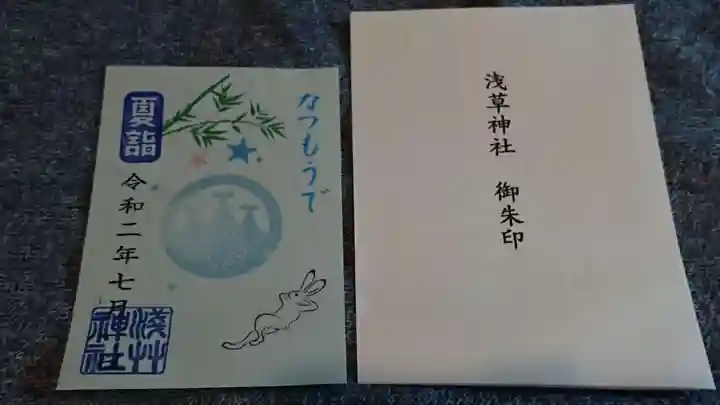 なつもうで
夏詣
令和二年七月
淺草神社
浅草神社 御朱印